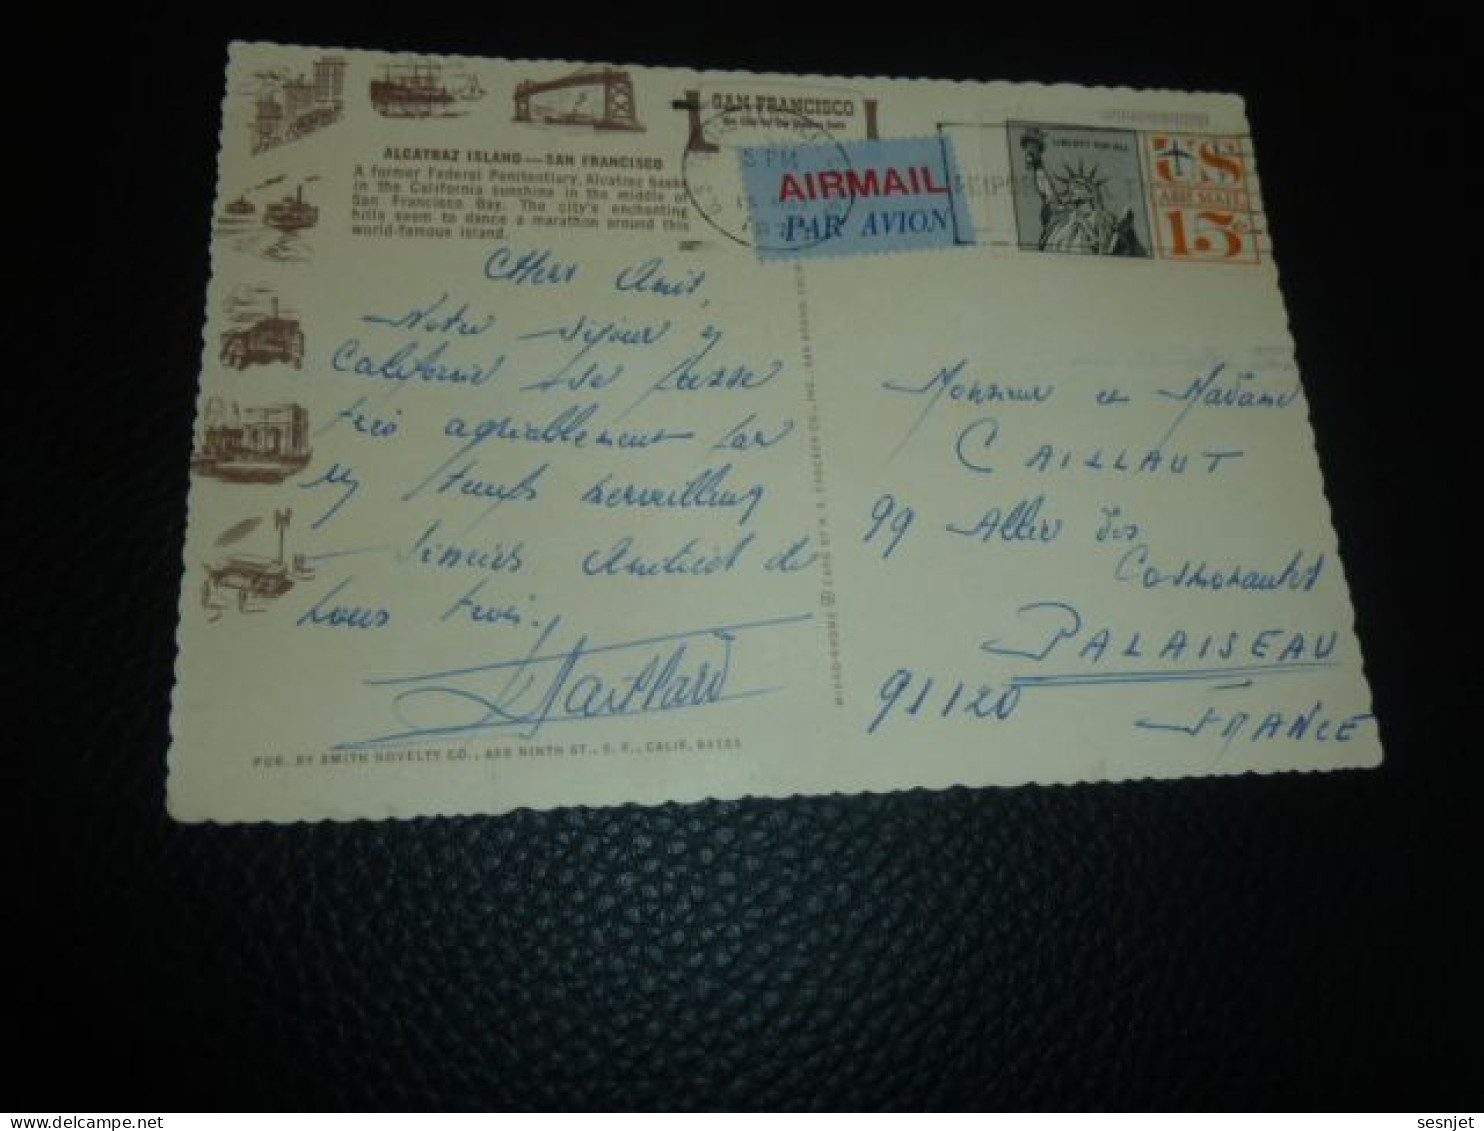 SAN FRANCISCO
ALCATRAZ ISLAND — SAN FRANCISCO
A former Federal Penitentiary, Alcatraz basks
in the California sunshine in the middle of
San Francisco Bay. The city's enchanting
hills seem to dance a marathon around this
world-famous island.
AIRMAIL
PAR AVION
LIBERTY FOR ALL
US
AIR MAIL
15c
Chers Amis,
Notre séjour en
Californie se passe
très agréablement par
un temps merveilleux
Sincères Amitiés de
nous trois.
Monsieur et Madame
CAILLAUT
99 Allée des
Cosmonautes
PALAISEAU
91120
FRANCE
PUB. BY SMITH NOVELTY CO., 460 NINTH ST., S. F., CALIF. 94103
MIRRO-KROME ® CARD BY H. S. CROCKER CO., INC., SAN BRUNO, CALIF.
sesnjet